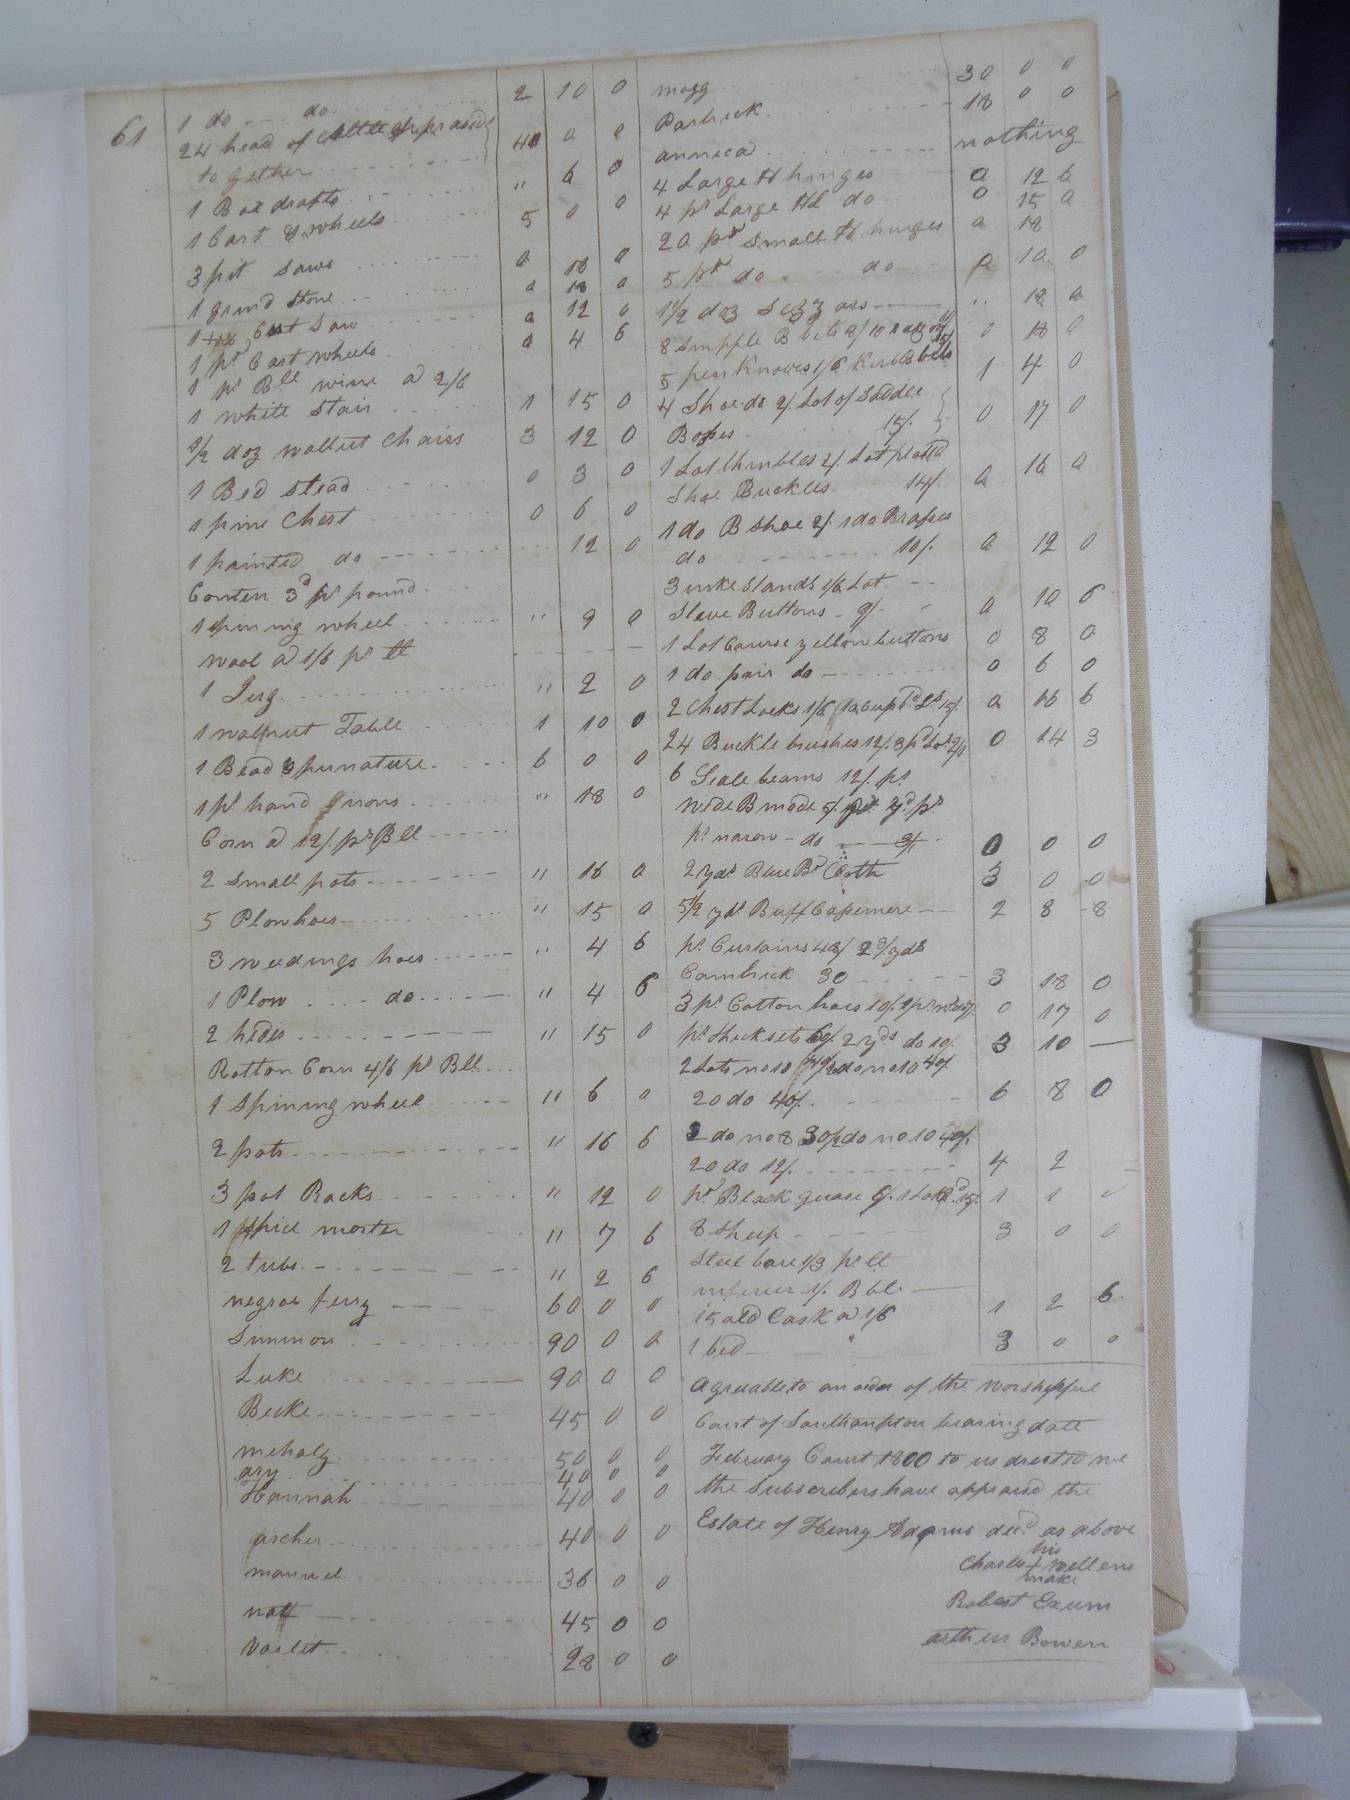 61
1 do do 2 10 0
24 head of Cattle
together 40 0 0
1 Box drafts " 6 0
1 Cart & wheels 5 0 0
3 pit Saws 0 18 0
1 grind Stone 0 18 0
1 Cut Saw 0 12 0
1 pr Cart wheels 0 4 6
1 pr Bll wine a 2/6
1 white Stair 1 15 0
1/2 doz wallnut Chairs 3 12 0
1 Bed Stead 0 3 0
1 pine Chest 0 6 0
1 painted do 12 0
Conten 3d pr pound
1 spining wheel " 9 0
Wool a 1/6 pr tt
1 Jugg " 2 0
1 walnut Table 1 10 0
1 Bead & punature 6 0 0
1 pr hand Jirons " 18 0
Corn a 12/. pr Bll
2 Small pots " 16 0
5 Plow hoes " 15 0
3 weedings hoes " 4 6
1 Plow do " 4 6
2 hides " 15 0
Rotton Corn 4/6 pr Bll
1 Spining wheel " 6 0
2 pots " 16 6
3 pot Racks " 12 0
1 Spice morter " 7 6
2 tubs " 2 6
negroe ferry 60 0 0
Simmon 90 0 0
Luke 90 0 0
Becke 45 0 0
mehaly 50 0 0
ary 40 0 0
Hannah 40 0 0
archer 40 0 0
manuel 36 0 0
natt 45 0 0
Vailet 28 0 0
mogg 30 0 0
Patrick 18 0 0
annica nothing
4 Large H hinges 0 12 6
4 pr Large HL do 0 15 0
20 prs Small H hinges 0 18
5 prs do do 0 10 0
1 1/2 doz " 18 0
8 Snipple B bits 0 18 0
5 pen Knoives 1/6 1 4 0
4 Shoe do 2/. Lot of Saddle
Bosses 15/. 0 17 0
1 Lot thimbles 2/. Lot plated
Shoe Buckles 14/. 0 16 0
1 do B Shoe 2/. 1 do Brasses
do 10/. 0 12 0
3 inke Stands 1/6 Lot
Sleve Buttons 9/. 0 10 6
1 Lot Course yellow buttons 0 8 0
1 do pair do 0 6 0
2 Chest Locks 1/6 0 16 6
24 Buckle brushes 12/. 0 14 3
6 Scale beams 12/. pr
wide B mode 5/.
pr narow do 0 0 0
2 yds Blue Bd Cloth 3 0 0
5 1/2 yds Buff Casemere 2 8 8
pr Curtains 48/. 2 yds
Cambrick 30 3 18 0
3 pr Cotton hoes 10/. 0 17 0
pr thicksets 60/. 2 yds do 10/. 3 10
2 Lots no 10 do no 10 40/.
20 do 40/. 6 8 0
2 do no 8 30/. 2 do no 10 40/.
20 do 12/. 4 2
pr Black guase 6/. 1 1
8 Sheep 3 0 0
Steel bare 1/3 pr tt
inferier 1/. B bls
15 old Cask a 1/6 1 2 6
1 bed 3 0 0
Agreable to an order of the Worshipful
Court of Southampton bearing date
February Court 1800 to us directed we
the Subscribers have appraised the
Estate of Henry Adams decd as above
his
Charles + Wellens
mark
Robert Exum
arthur Bowen